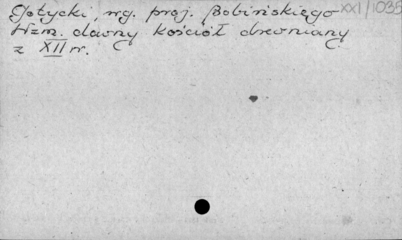 Gotycki, wg. proj. Bobińskiego XXI/1035
Wzm. dawny kościół drewniany
z XII w.